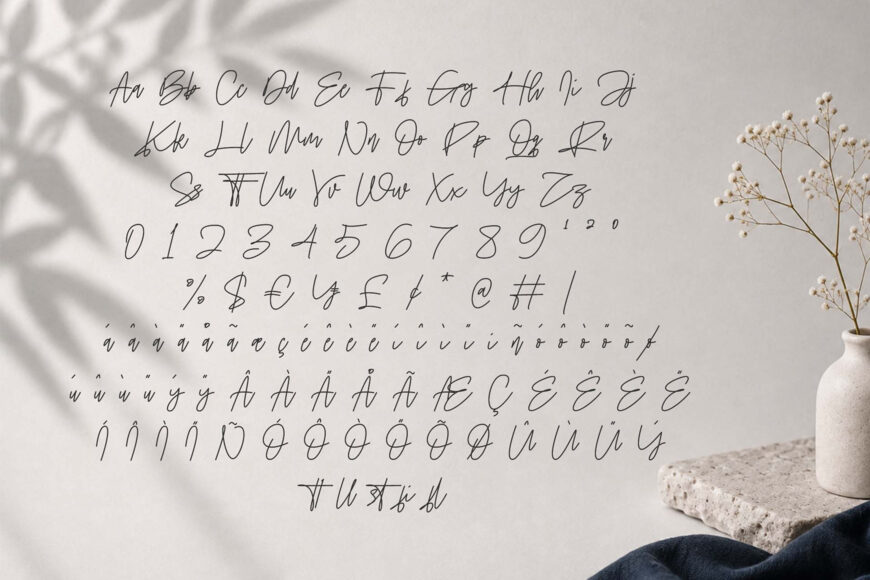 Aa Bb Cc Dd Ee Ff Gg Hh Ii Jj
Kk Ll Mm Nn Oo Pp Qq Rr
Ss Tt Uu Vv Ww Xx Yy Zz
0 1 2 3 4 5 6 7 8 9 ¹ ² ⁰
% $ € ¥ £ ¢ * @ # |
á â à ä å ã æ ç é ê è ë í î ì ï i ñ ó ô ò ö õ ø
ú û ù ü ý ÿ Â À Ä Å Ã Æ Ç É Ê È Ë
Í Î Ì Ï Ñ Ó Ô Ò Ö Õ Ø Û Ù Ü Ý
tt ll